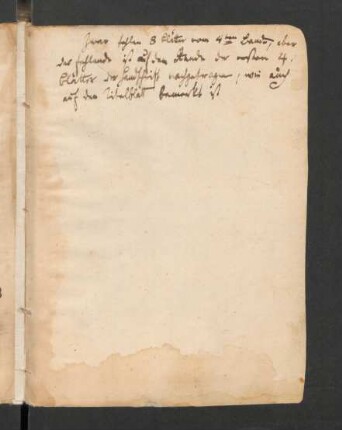 Zwar fehlen 8 Blätter vom 4ten Bande, aber
das fehlende ist auf dem Rande der ersten 4.
Blätter der Handschrift nachgetragen, wie auch
auf dem Titelblatt bemerkt ist